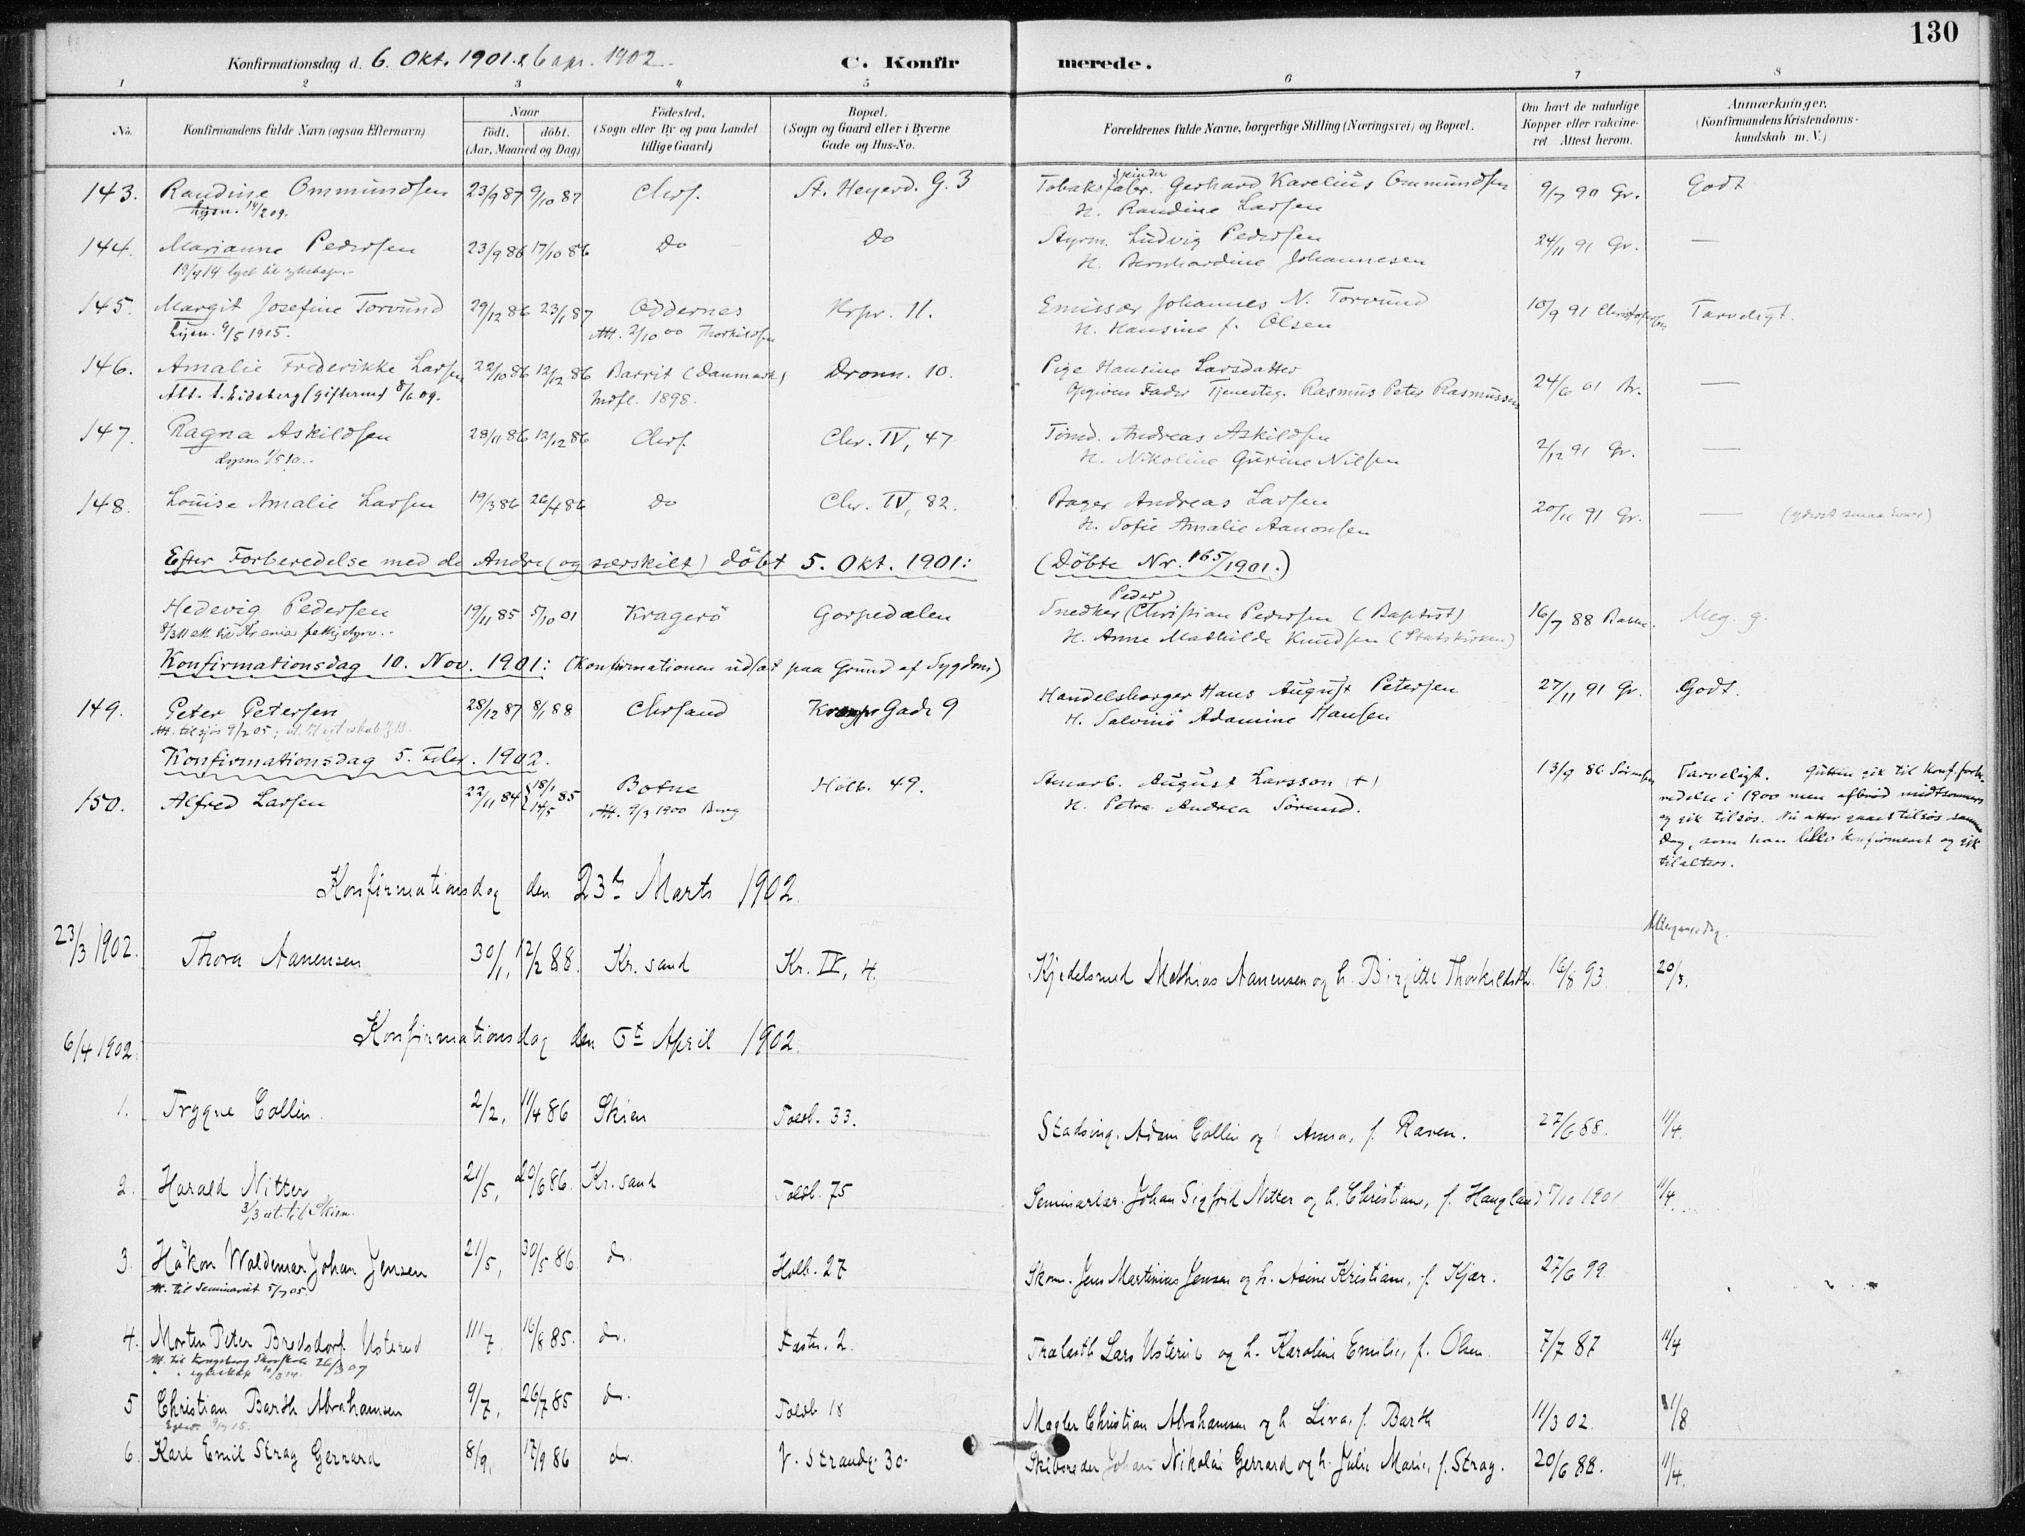 130
Konfirmationsdag d. 6. Okt. 1901. & 6 apr. 1902.
C. Konfirmerede.
1 2 3 4 5 6 7 8
No.
Konfirmandens fulde Navn (ogsaa Efternavn)
Naar
født. døbt.
(Aar, Maaned og Dag)
Fødested.
(Sogn eller By og paa Landet
tillige Gaard)
Bopæl.
(Sogn og Gaard eller i Byerne
Gade og Hus-No.
Forældrenes fulde Navne, borgerlige Stilling (Næringsvei) og Bopæl.
Om havt de naturlige
Kopper eller vakcine-
ret. Attest herom.
Anmærkninger.
(Konfirmandens Kristendoms-
kundskab m. V.)
143. Randine Ommundsen 23/9 87 9/10 87 Chrs. St. Heyerd. G. 3 Tobaksspinder Gerhard Karelius Ommundsen 9/7 90 Gr. Godt
Lysn. 14/2 09. H. Randine Larsen
144. Marianne Pedersen 23/9 86 17/10 86 Do Do Styrm. Ludvig Pedersen 24/11 91 Gr. —
H. Bernhardine Johannesen
145. Margit Josefine Torvund 29/12 86 23/1 87 Oddernes Krpr. 11. Emissær Johannes N. Torvund 10/9 91 Tarveligt.
Lysn. 9/5 1915. Att. 2/10 00 Thorkildsen H. Hansine f. Olsen
146. Amalie Frederikke Larsen 22/10 86 12/12 86 Barrit (Danmark) Dronn. 10. Pige Hansine Larsdatter 24/6 01 —
Att. t. Eidsberg (giftermål 8/6 09. Indfl. 1898. Opgiven Fader Tjenesteg. Rasmus Peter Rasmussen
147. Ragna Askildsen 28/11 86 12/12 86 Chrs. Chr. IV, 47 Tømd. Andreas Askildsen 2/12 91 Gr. —
Lysn. 1/5 10. H. Nikoline Gurine Nilsen
148. Louise Amalie Larsen 19/3 86 26/4 86 Do Chr. IV, 82. Bager Andreas Larsen 20/11 91 Gr. —
H. Sofie Amalie Aanonsen
Efter Forberedelse med de Andre (og særskilt) døbt 5. Okt. 1901: (Døbte Nr. 165/1901.)
Hedevig Pedersen 19/11 85 5/10 01 Kragerö Gorpedalen Snedker (Peder) Christian Pedersen (Baptist) 16/7 88 Meg. g.
H. Anne Mathilde Knudsen (Statskirken)
Konfirmationsdag 10. Nov. 1901: (Konfirmationen udsat paa Grund af Sygdom)
149. Peter Petersen 28/12 87 8/1 88 Chrsand Gade 9 Handelsborger Hans August Petersen 27/11 91 Gr. Godt.
Att. til sjøs 9/2 05; H. Salvine Adamine Hansen
Konfirmationsdag 5. Febr. 1902.
150. Alfred Larsen 22/11 84 {18/1 14/5 85 Botne Holb. 49. Smarb. August Larsson (+) 13/9 86 Sørensen Tarveligt. Gutten gik til Konf.forbe-
Att. 9/3 1900 Berg H. Petra Andrea Sörensd. redelse i 1900 men afbrød midtsommers
og gik tilsøs. Nu atter gaaet tilsøs samme
Dag, som han blev konfirmeret og gik
til alters.
Konfirmationsdag den 23de Marts 1902.
Altergangsdag.
23/3 1902. Thora Aanensen 30/1, 12/2 88. Kr.sand Kr. IV, 4. Kjedelsmed Mathias Aanensen og h. Birgitte Thorkildsdtr. 16/8 93. 20/3.
6/4 1902. Konfirmationsdag den 6te April 1902.
1. Trygve Collin. 2/2, 11/4 86 Skien Toldb. 33. Stadsing. Adam Collin og h. Anna, f. Raven. 27/6 88. 11/4.
2. Harald Nitter 21/5, 20/6 86. Kr.sand Toldb. 75 Seminarlær. Johan Sigfrid Nitter og h. Christiane, f. Haugland 7/10 1901 11/4.
3/3 att. til Skien.
3. Håkon Waldemar Johan Jensen 21/5, 30/5 86. do. Holb. 27 Skom. Jens Martinius Jensen og h. Asine Kristiane, f. Kjær. 27/6 99.
Att. til seminariet 5/7 05.
4. Morten Peter Bredsdorf Usterud 11/7. 16/8 85. do. Fæstn. 2. Trælasth. Lars Usterud og h. Karoline Emilie, f. Olsen. 7/7 87 11/4
Att. til Kongsberg Skovskole 26/3 07
5 Christian Barth Abrahamsen 9/7, 26/7 85 do. Toldb 18 Mægler Christian Abrahamsen og h. Liva, f. Barth 11/3 02. 11/8
6. Karl Emil Stray Gerrard 8/9, 17/9 86 do. V. Strandg. 30. Skibsreder Johan Nikolai Gerrard og h. Julie Marie, f. Stray. 20/6 88. 11/4.